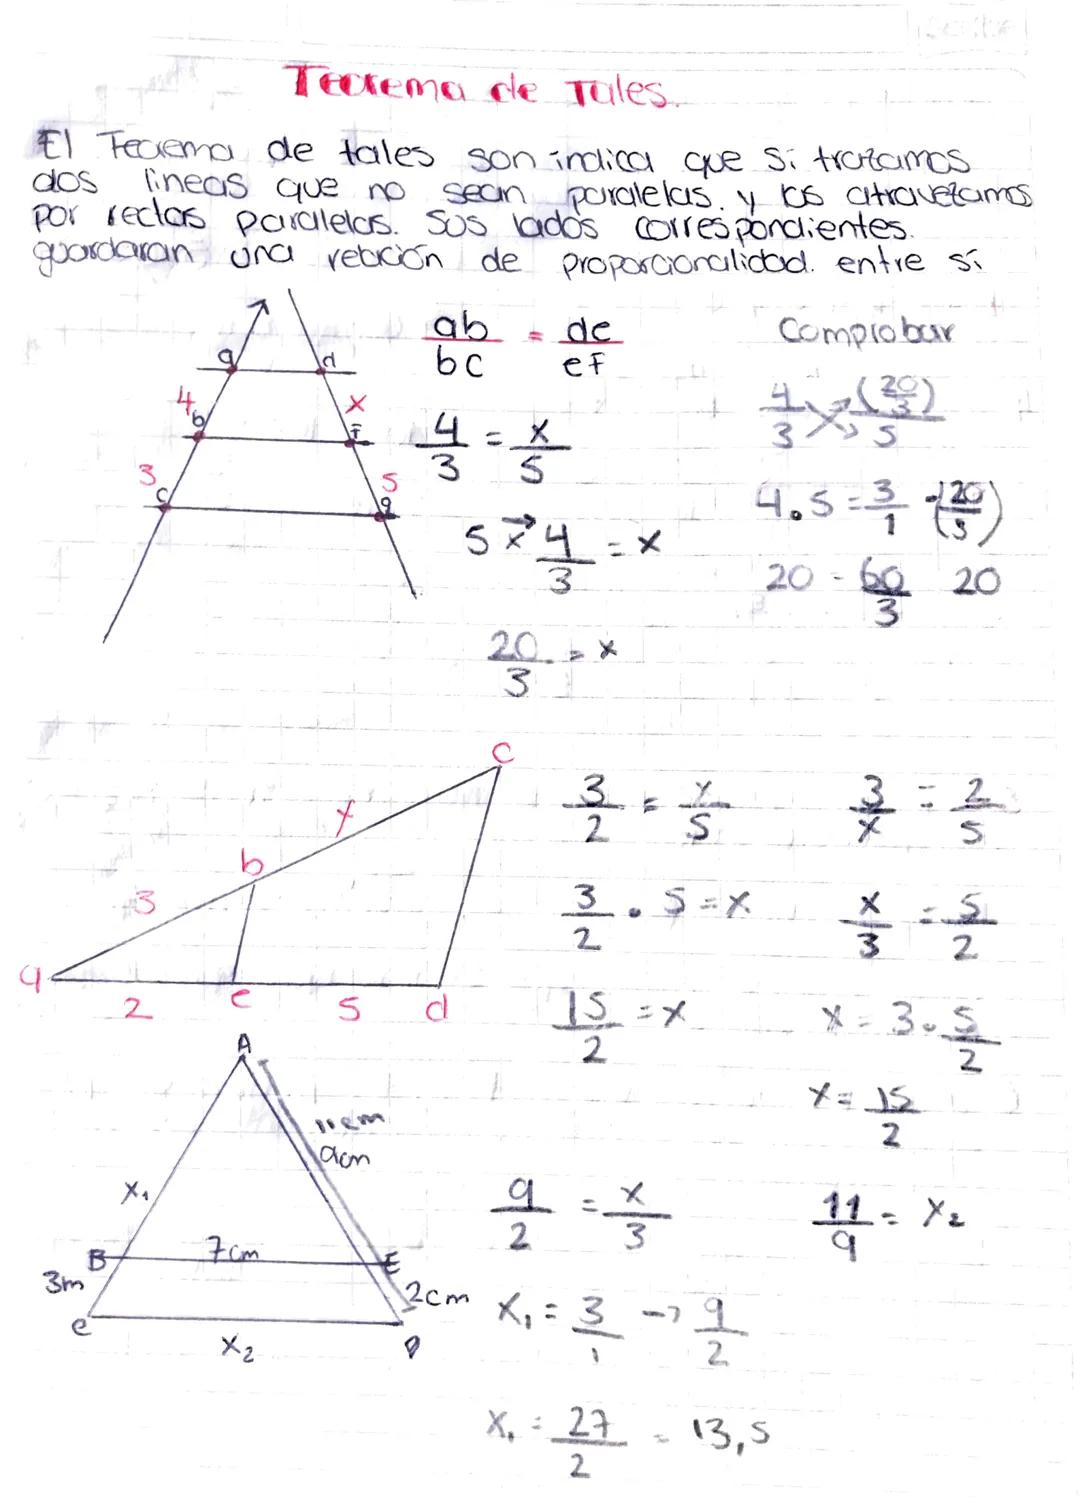 Teorema de Tales.
El Teorema de tales son indica que si trazamos
dos lineas que no sean paralelas. y los atravezamos
por rectas paralelas. Sus lados correspondientes.
guardaran una relación de proporcionalidad. entre sí
ab/bc = de/ef
Comprobar
a d
4 b x f
3 c 5 g
4/3 = x/5
5 x 4/3 = x
20/3 = x
4/3 x (20/3)/5
4.5 = 3/1 (20/3)
20 - 60/3 20
c
x
b
3
a
2 e 5 d
3/2 = x/5
3/2 . 5 = x
15/2 = x
3/x = 2/5
x/3 = 5/2
x = 3. 5/2
x = 15/2
A
11cm
9cm
x₁
B 7cm E
3m 2cm
e x₂ D
9/2 = x/3
11/9 = x₂
x₁ = 3/1 → 9/2
x₁ = 27/2 = 13,5